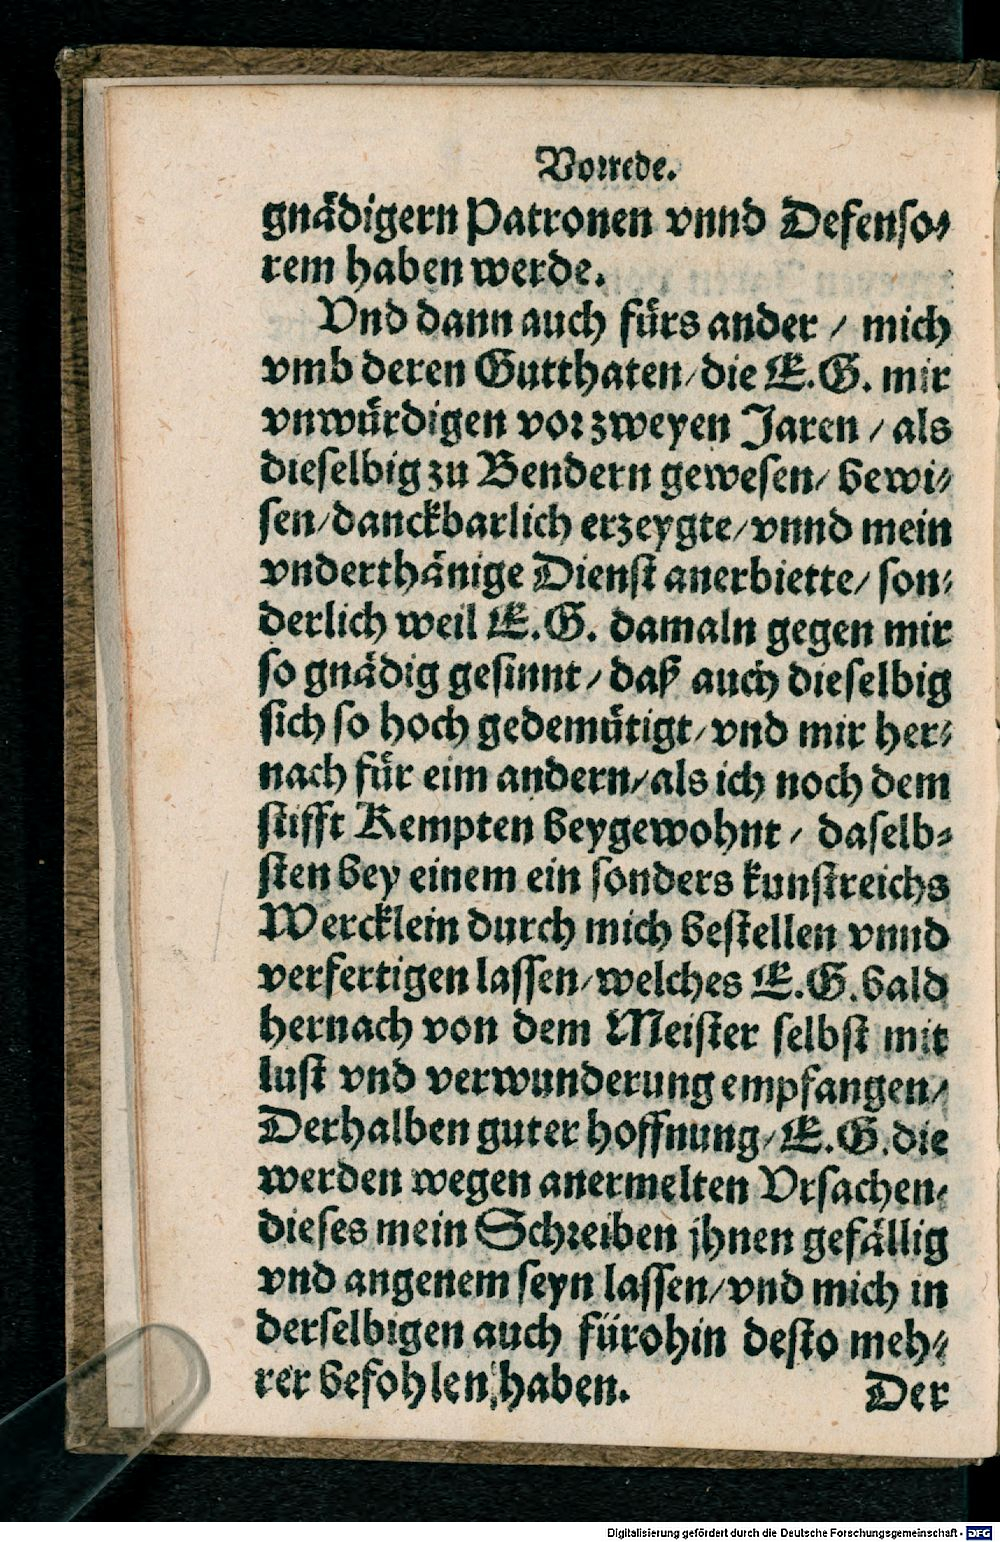 Vorrede.
gnädigern Patronen vnnd Defenso⸗
rem haben werde.
Vnd dann auch fürs ander / mich
vmb deren Gutthaten / die E. G. mir
vnwürdigen vor zweyen Jaren / als
dieselbig zu Bendern gewesen / bewi⸗
sen / danckbarlich erzeygte / vnnd mein
vnderthänige Dienst anerbiette / son⸗
derlich weil E. G. damaln gegen mir
so gnädig gesinnt / daß auch dieselbig
sich so hoch gedemütigt / vnd mir her⸗
nach für eim andern / als ich noch dem
stifft Kempten beygewohnt / daselb⸗
sten bey einem ein sonders kunstreichs
Wercklein durch mich bestellen vnnd
verfertigen lassen / welches E. G. bald
hernach von dem Meister selbst mit
lust vnd verwunderung empfangen /
Derhalben guter hoffnung / E. G. die
werden wegen anermelten Vrsachen /
dieses mein Schreiben jhnen gefällig
vnd angenem seyn lassen / vnd mich in
derselbigen auch fürohin desto meh⸗
rer befohlen haben.
Der
Digitalisierung gefördert durch die Deutsche Forschungsgemeinschaft - DFG